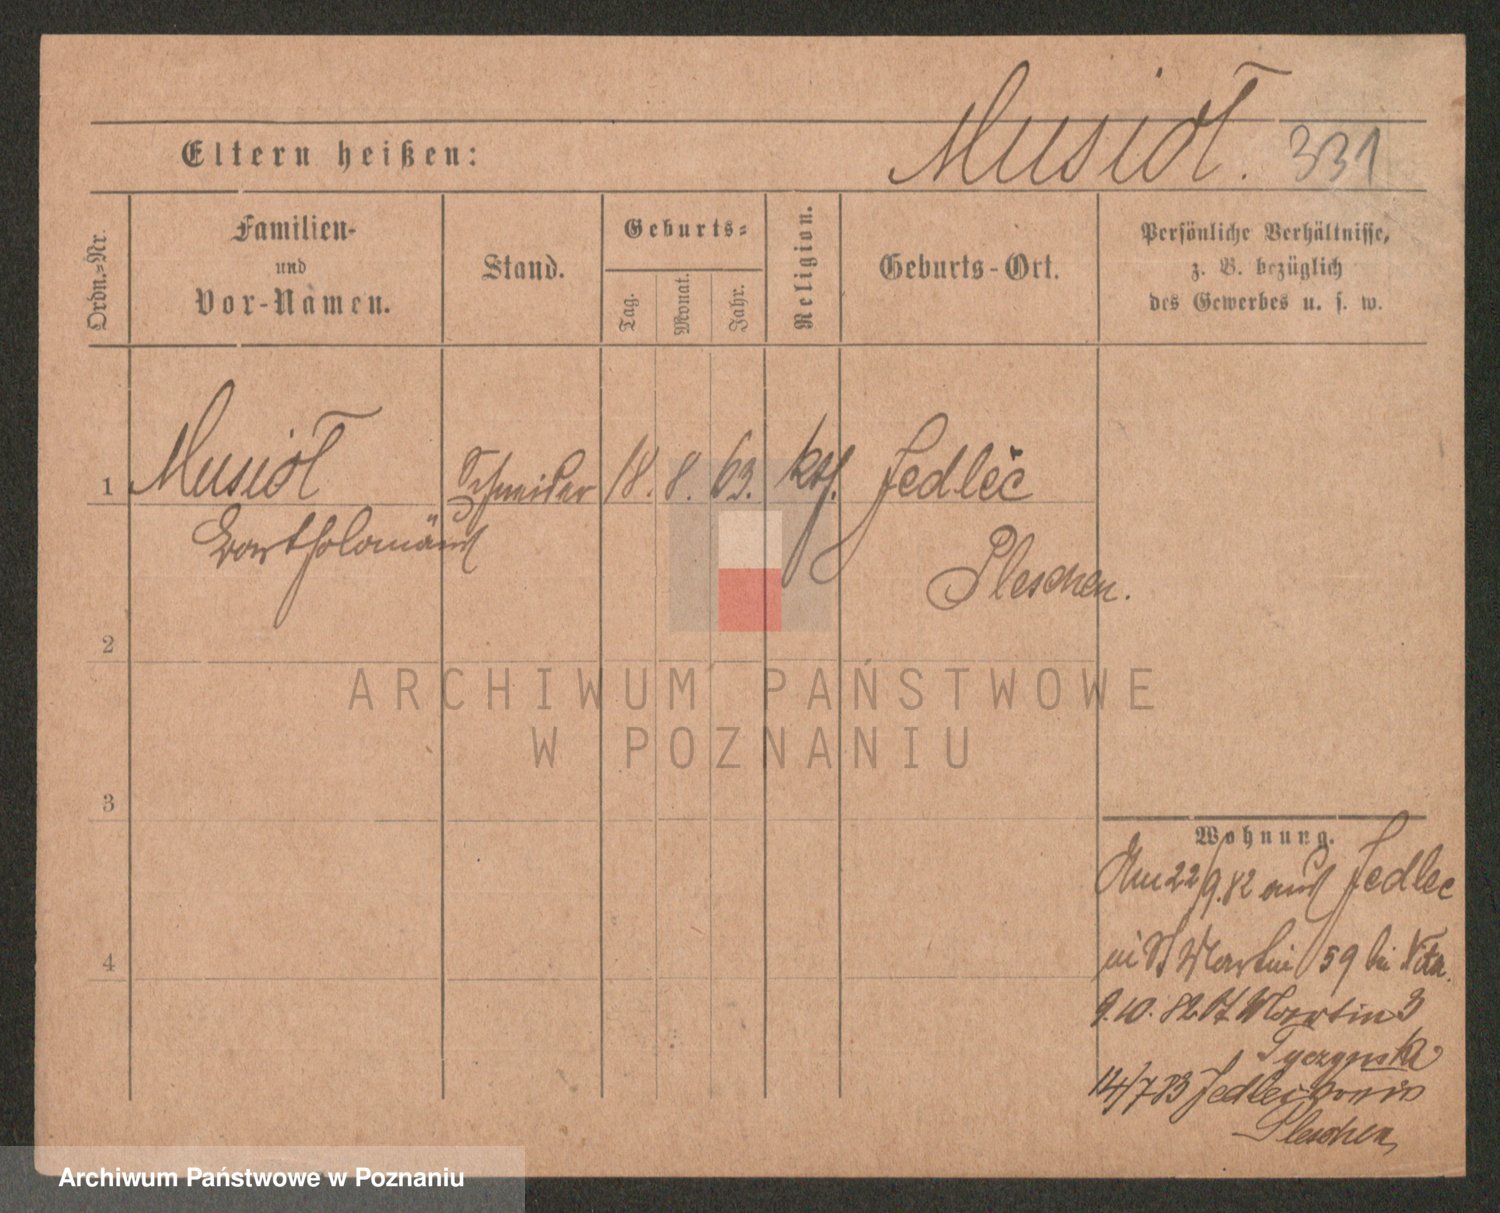 Musiol. 331
Eltern heißen:
Ordn.=Nr.
Familien-
und
Vor-Namen.
Stand.
Geburts=
Tag.
Monat.
Jahr.
Religion.
Geburts-Ort.
Persönliche Verhältnisse,
z. B. bezüglich
des Gewerbes u. s. w.
1 Musiol Schneider 18. 8. 63. kth. Jedleč
Bartholomäus
Pleschen.
2
3
4
ARCHIWUM PAŃSTWOWE
W POZNANIU
Wohnung.
Am 22/9.82 aus Jedlec
St Martin 59 bei
9.10.82 St Martin 3
Tyczynska
14/7 83 Jedlec
Pleschen
Archiwum Państwowe w Poznaniu